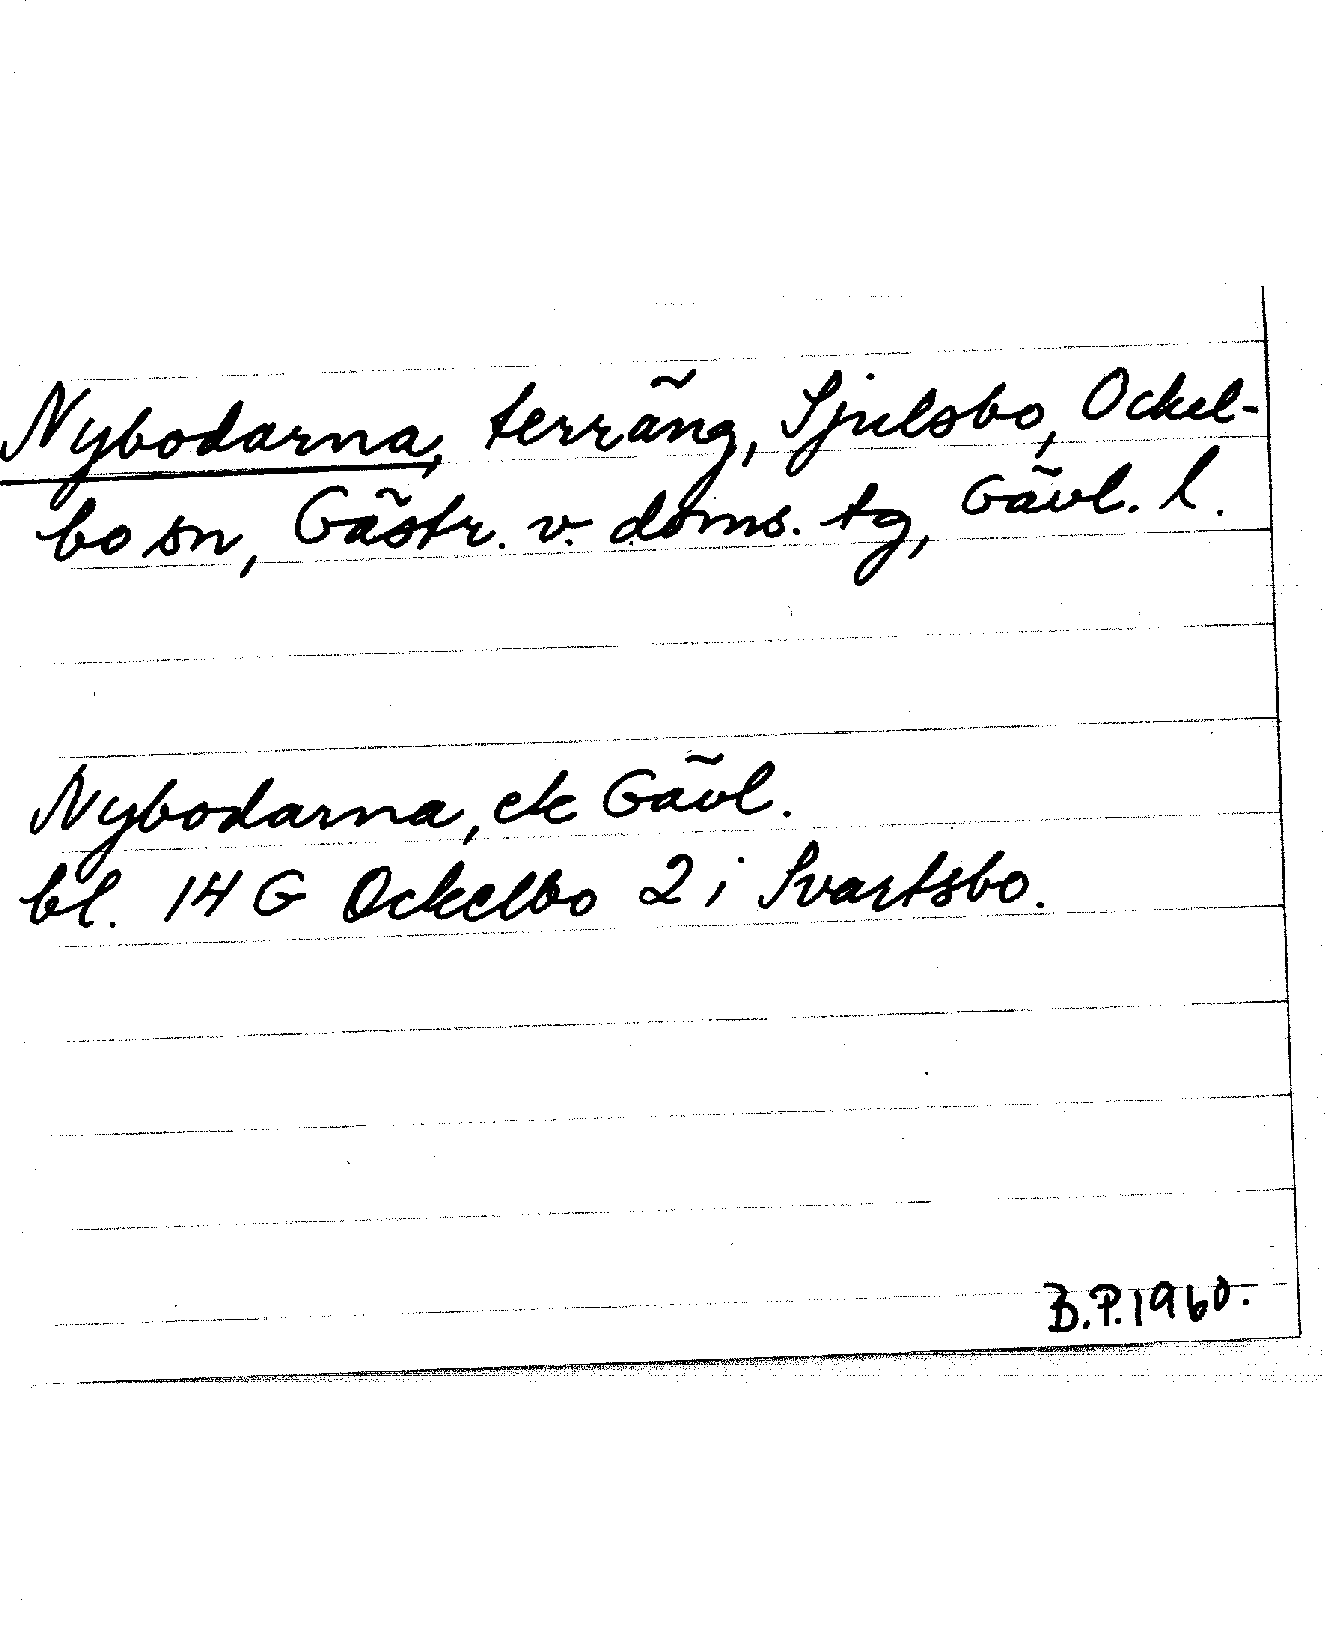 Nybodarna, terräng, Sjulsbo, Ockel-
bo sn, Gästr. v. doms. tg, Gävl. l.
Nybodarna, ek Gävl.
bl. 14 G Ockelbo 2 i Svartsbo.
B.P. 1960.